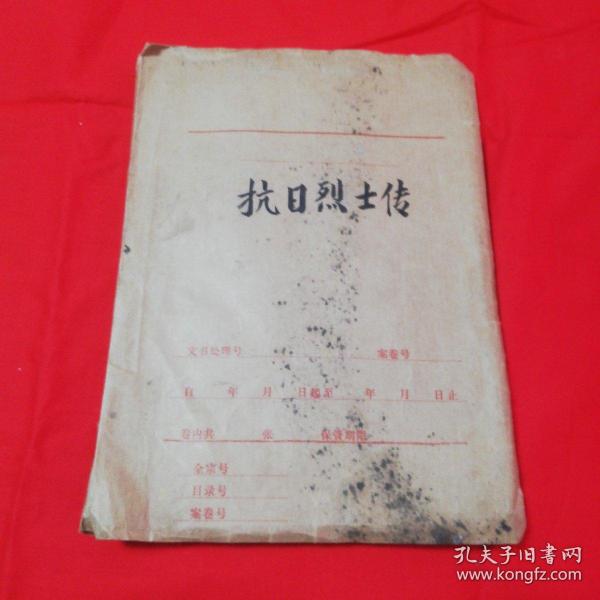 抗日烈士传
文书处理号 案卷号
自 年 月 日起至 年 月 日止
卷内共 张 保管期限
全宗号
目录号
案卷号
孔夫子旧书网
www.kongfz.com